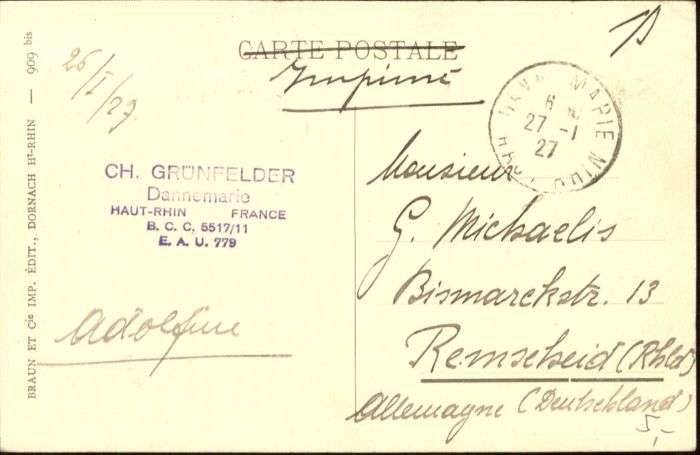 BRAUN ET Cie IMP. ÉDIT., DORNACH Ht-RHIN — 909 bis
26/I/27
CARTE POSTALE
Imprimé
CH. GRÜNFELDER
Dannemarie
HAUT-RHIN FRANCE
B. C. C. 5517/11
E. A. U. 779
MARIE
6
27 -1
27
Monsieur
G. Michaelis
Bismarckstr. 13
Remscheid (Rhld)
Allemagne (Deutschland)
5,-